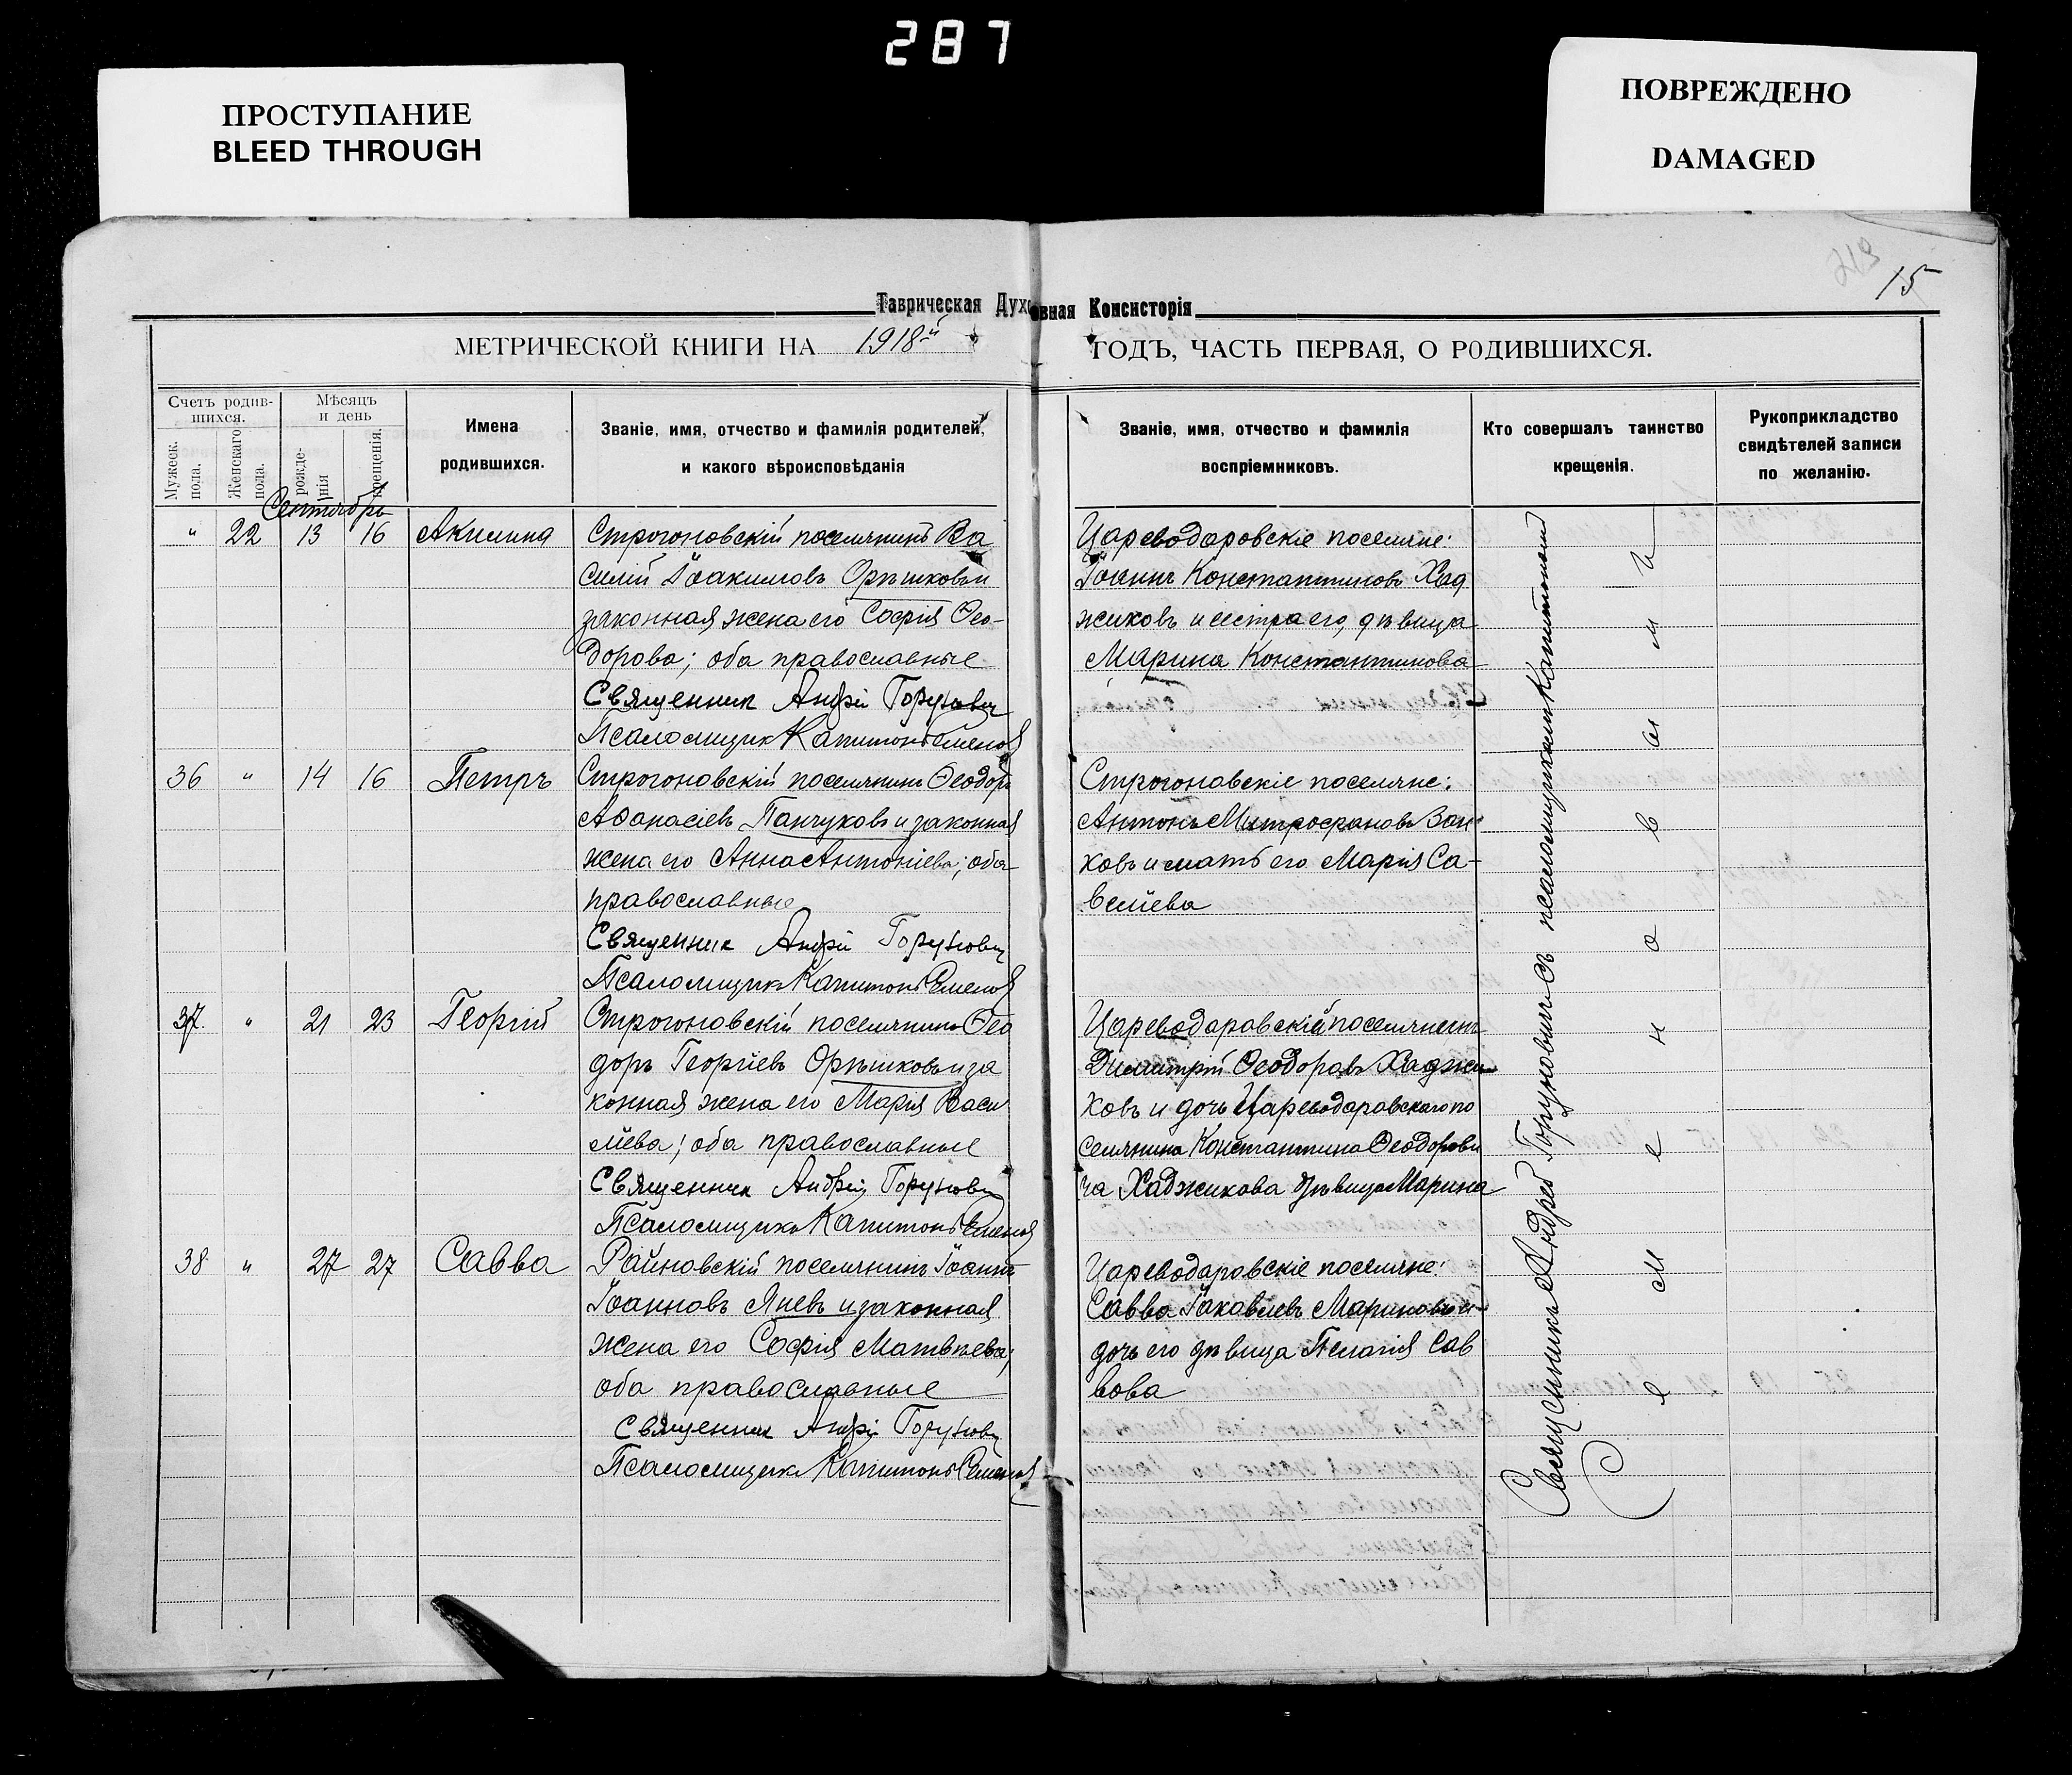 287
ПРОСТУПАНИЕ
BLEED THROUGH
ПОВРЕЖДЕНО
DAMAGED
15
Таврическая Духовная Консисторія
МЕТРИЧЕСКОЙ КНИГИ НА 1918й ГОДЪ, ЧАСТЬ ПЕРВАЯ, О РОДИВШИХСЯ.
Счетъ родив-
шихся.
Мужеск.
пола.
Женскаго
пола.
Мѣсяцъ
и день
рожде-
нія
крещенія.
Имена
родившихся.
Званіе, имя, отчество и фамилія родителей,
и какого вѣроисповѣданія
Званіе, имя, отчество и фамилія
воспріемниковъ.
Кто совершалъ таинство
крещенія.
Рукоприкладство
свидѣтелей записи
по желанію.
Сентябрь
" 22 13 16 Акилина
Строгоновскій поселянинъ Ва
силій Іоакимовъ Орѣшковъ и
законная жена его Софія Ѳео-
дорова; оба православные
Священник Андрей Горунович
Псаломщикъ Капитонъ Семенов
Цареводаровскіе поселяне:
Іоаннъ Константиновъ Хад
жиковъ и сестра его, дѣвица
Марина Константинова
36 " 14 16 Петръ
Строгоновскій поселянинъ Ѳеодоръ
Аѳанасіевъ Панчуковъ и законная
жена его Анна Антоніева; оба
православные
Священник Андрей Горунович
Псаломщикъ Капитонъ Семенов
Строгоновскіе поселяне:
Антонъ Митрофановъ
ковъ и мать его Марія Са-
веліева
37 " 21 23 Георгій
Строгоновскій поселянинъ Ѳео
доръ Георгіевъ Орѣшковъ и за
конная жена его Марія Васи
ліева; оба православные
Священник Андрей Горунович
Псаломщикъ Капитонъ Семенов
Цареводаровскій поселянинъ
Димитрій Ѳеодоровъ Хаджи
ковъ и дочь Цареводаровскаго по
селянина Константина Ѳеодорови
ча Хаджикова дѣвица Марина
38 " 27 27 Савва
Райновскій поселянинъ Іоаннъ
Іоанновъ Яневъ и законная
жена его Софія Матвѣева;
оба православные
Священник Андрей Горунович
Псаломщикъ Капитонъ Семенов
Цареводаровскіе поселяне:
Савва Іаковлевъ Мариновъ и
дочь его дѣвица Пелагія Сав
вова
Священникъ Андрей Горуновичъ съ псаломщикомъ Капитономъ
Семеновымъ